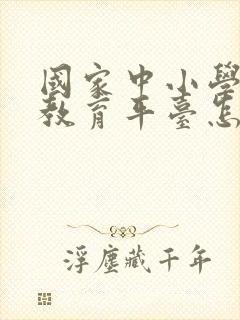 國家中小學
教育平臺怎
浮塵藏千年